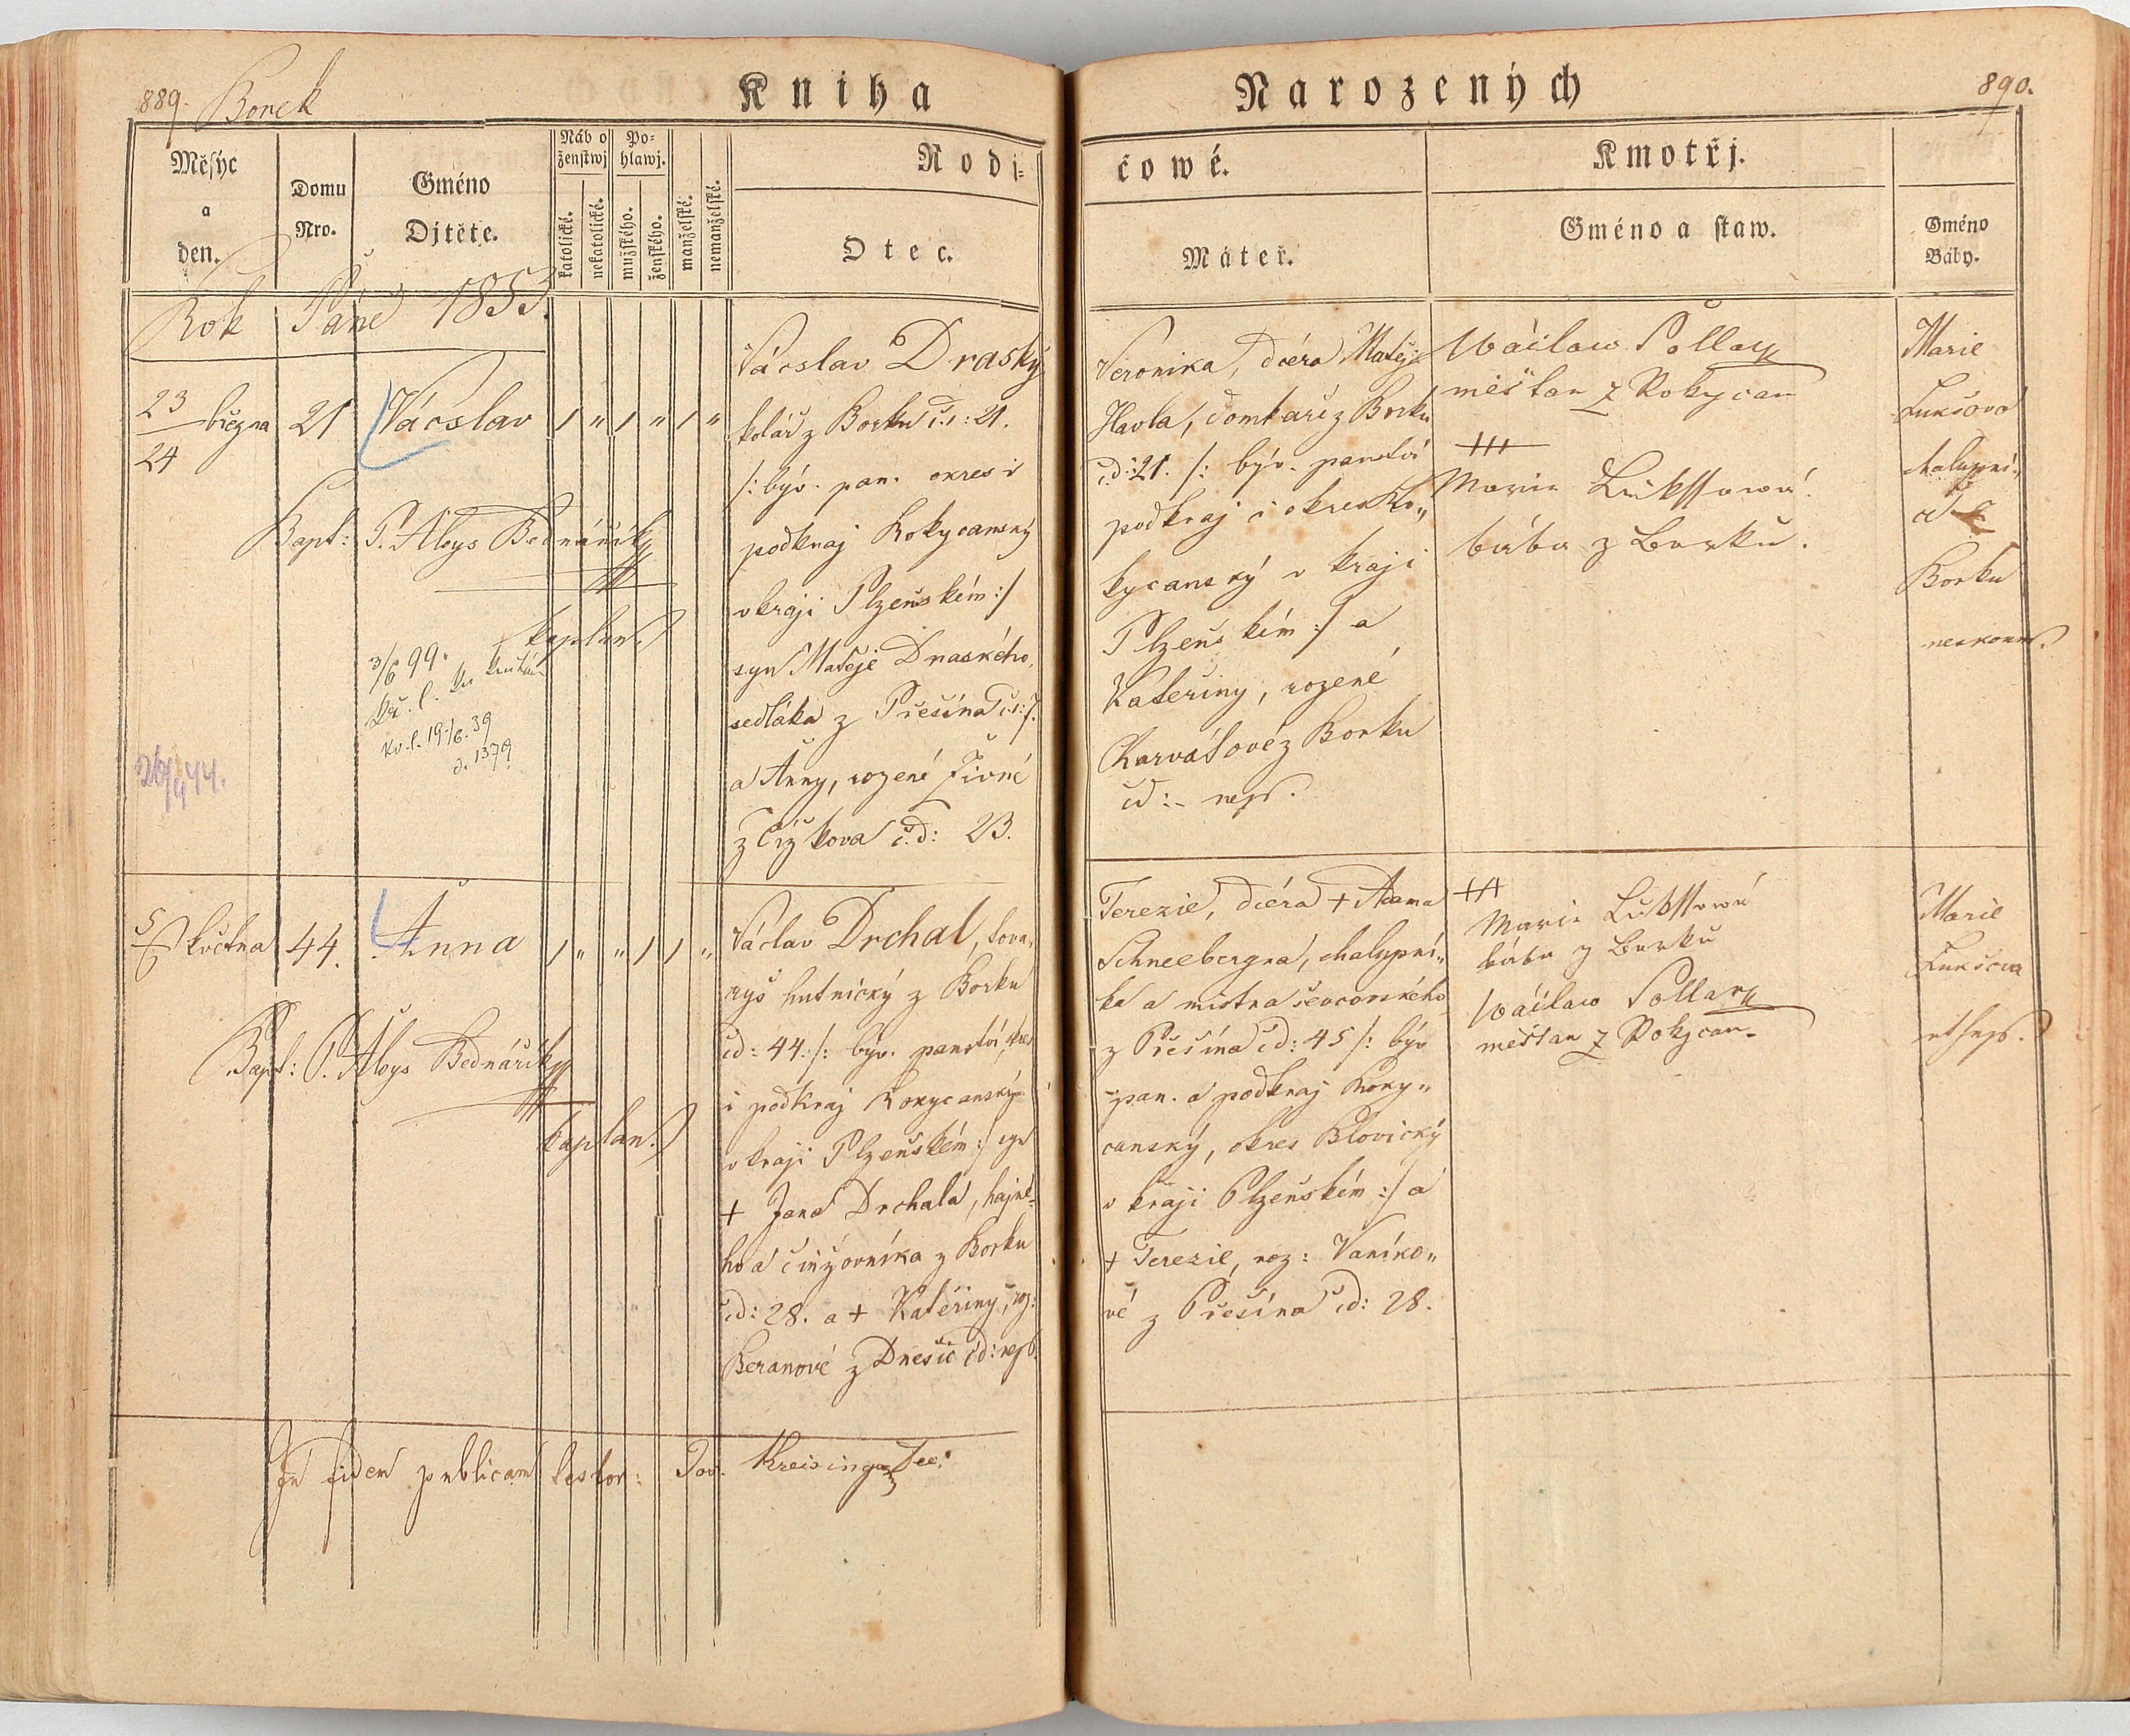 889.
Borek
Kniha
Narozených
890.
Měsýc
a
den.
Domu
Nro.
Gméno
Djtěte.
Náb o
ženstwj
Po-
hlawj.
katolické.
nekatolické.
mužského.
ženského.
manželské.
nemanželské.
Rodj-
Otec.
čowé.
Máteř.
Kmotřj.
Gméno a staw.
Gméno
Báby.
Rok Páně 1853.
23
24
března
21
Vácslav
/ „ / „ / „
Bapt: P. Aloys Bednářík
kaplan.
3/6 99.
kv. l. 19./6. 39
č. 1379
26/4 44.
Vácslav Draský
kolář z Borku č.: 21.
/: býv. pan. okres i
podkraj Rokycanský
v kraji Plzeňském :/
syn Matěje Draského,
sedláka z Přešína
a Anny, rozené Živné
z Čížkova č.d: 23.
Veronika, dcéra Matěje
Havla, domkaře z Borku
čd: 21. /: býv. panství
podkraj i okres Ro„
kycanský v kraji
Plzeňském :/ a
Kateřiny, rozené
Karvátové z Borku
čd: - nep.
Wáclaw Pollar
měšťan z Rokycan
+++
Marie Lukssowá
bába z Borku.
Marie
Lukšová
chalupni„
ce z
Borku
nezkouš.
5
6
května
44.
Anna
/ „ „ / / „
Bapt: P. Aloys Bednářík
kaplan.
Václav Drchal, tova„
ryš hutnický z Borku
čd: 44. /: býv. panství, okres
i podkraj Rokycanský
v kraji Plzeňském :/ syn
+ Jana Drchala, hajné„
ho a činžovníka z Borku
čd: 28. a + Kateřiny, roz:
Beranové z Dnešic čd: nep.
Terezie, dcéra + Adama
Schneebergra, chalupní„
ka a mistra ševcovského
z Přešína čd: 45 /: býv
pan. a podkraj Roky„
canský, okres Blovický
v kraji Plzeňském :/ a
+ Terezie, roz: Vaníko„
vé z Přešína čd: 28.
+++
Marie Lukssowá
bába z Borku
Wáclaw Pollar
měšťan z Rokycan.
Marie
Lukšova
In fidem publicam testor: Jos. Kreisinger